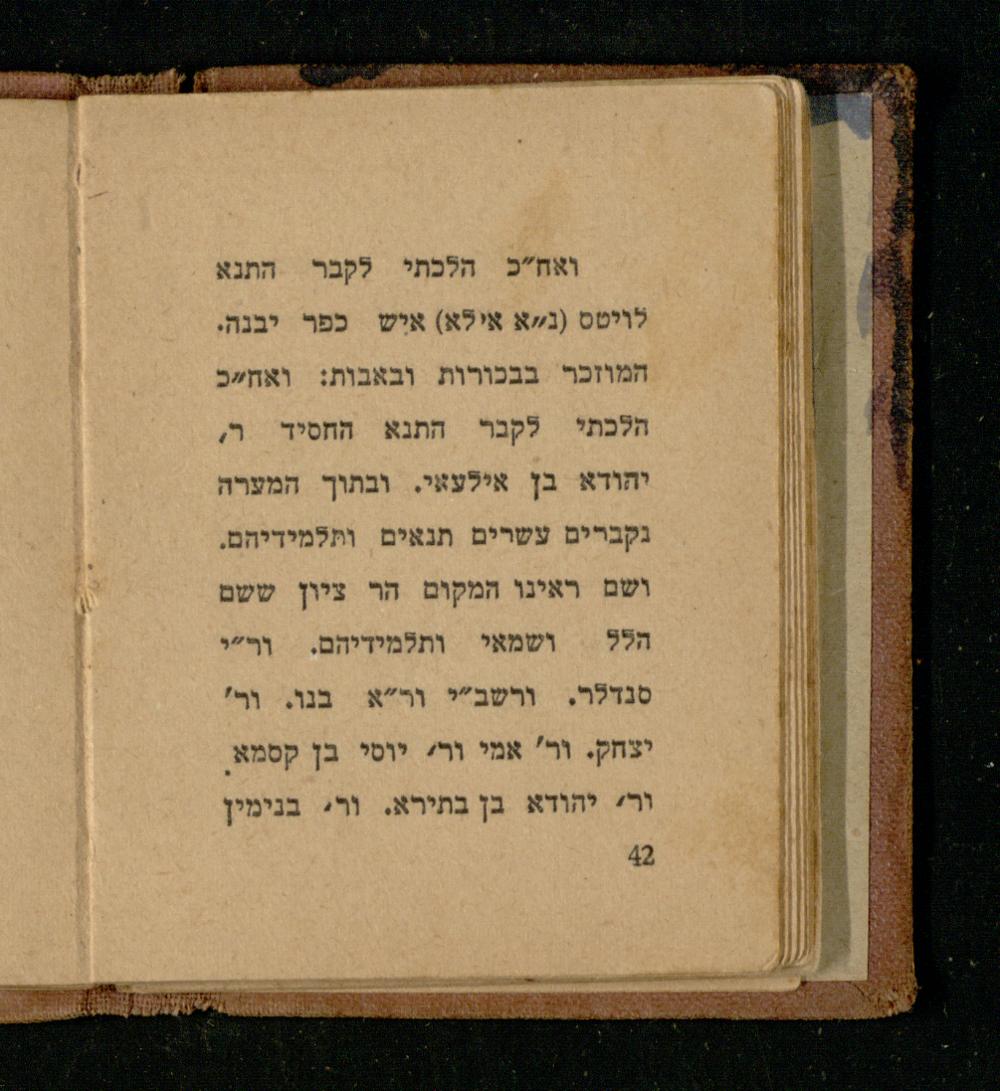 ואח״כ הלכתי לקבר התנא
לויטס (נ״א אילא) איש כפר יבנה.
המוזכר בבכורות ובאבות: ואח״כ
הלכתי לקבר התנא החסיד ר׳
יהודא בן אילעאי. ובתוך המערה
נקברים עשרים תנאים ותלמידיהם.
ושם ראינו המקום הר ציון ששם
הלל ושמאי ותלמידיהם. ור״י
סנדלר. ורשב״י ור״א בנו. ור׳
יצחק. ור׳ אמי ור׳ יוסי בן קסמא.
ור׳ יהודא בן בתירא. ור׳ בנימין
42